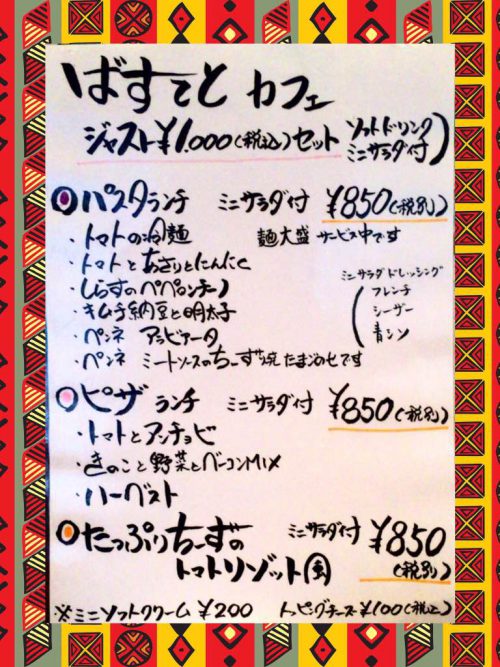 ばすてと カフェ
ジャスト¥1.000(税込)セット ソフトドリンク ミニサラダ付)
パスタランチ ミニサラダ付 ¥850(税別)
・トマトの冷麺 麺大盛 サービス中です
・トマトとあさりとにんにく
・しらすのペペロンチーノ
・キムチ納豆と明太子
・ペンネ アラビアータ
・ペンネ ミートソースのちーず焼 たまごのせです
ミニサラダドレッシング
フレンチ
シーザー
青シソ
ピザ ランチ ミニサラダ付 ¥850(税別)
・トマトとアンチョビ
・きのこと野菜とベーコンMIX
・ハーベスト
たっぷりちーずの ミニサラダ付 ¥850
トマトリゾット風 (税別)
※ミニソフトクリーム ¥200 トッピングチーズ ¥100(税込)